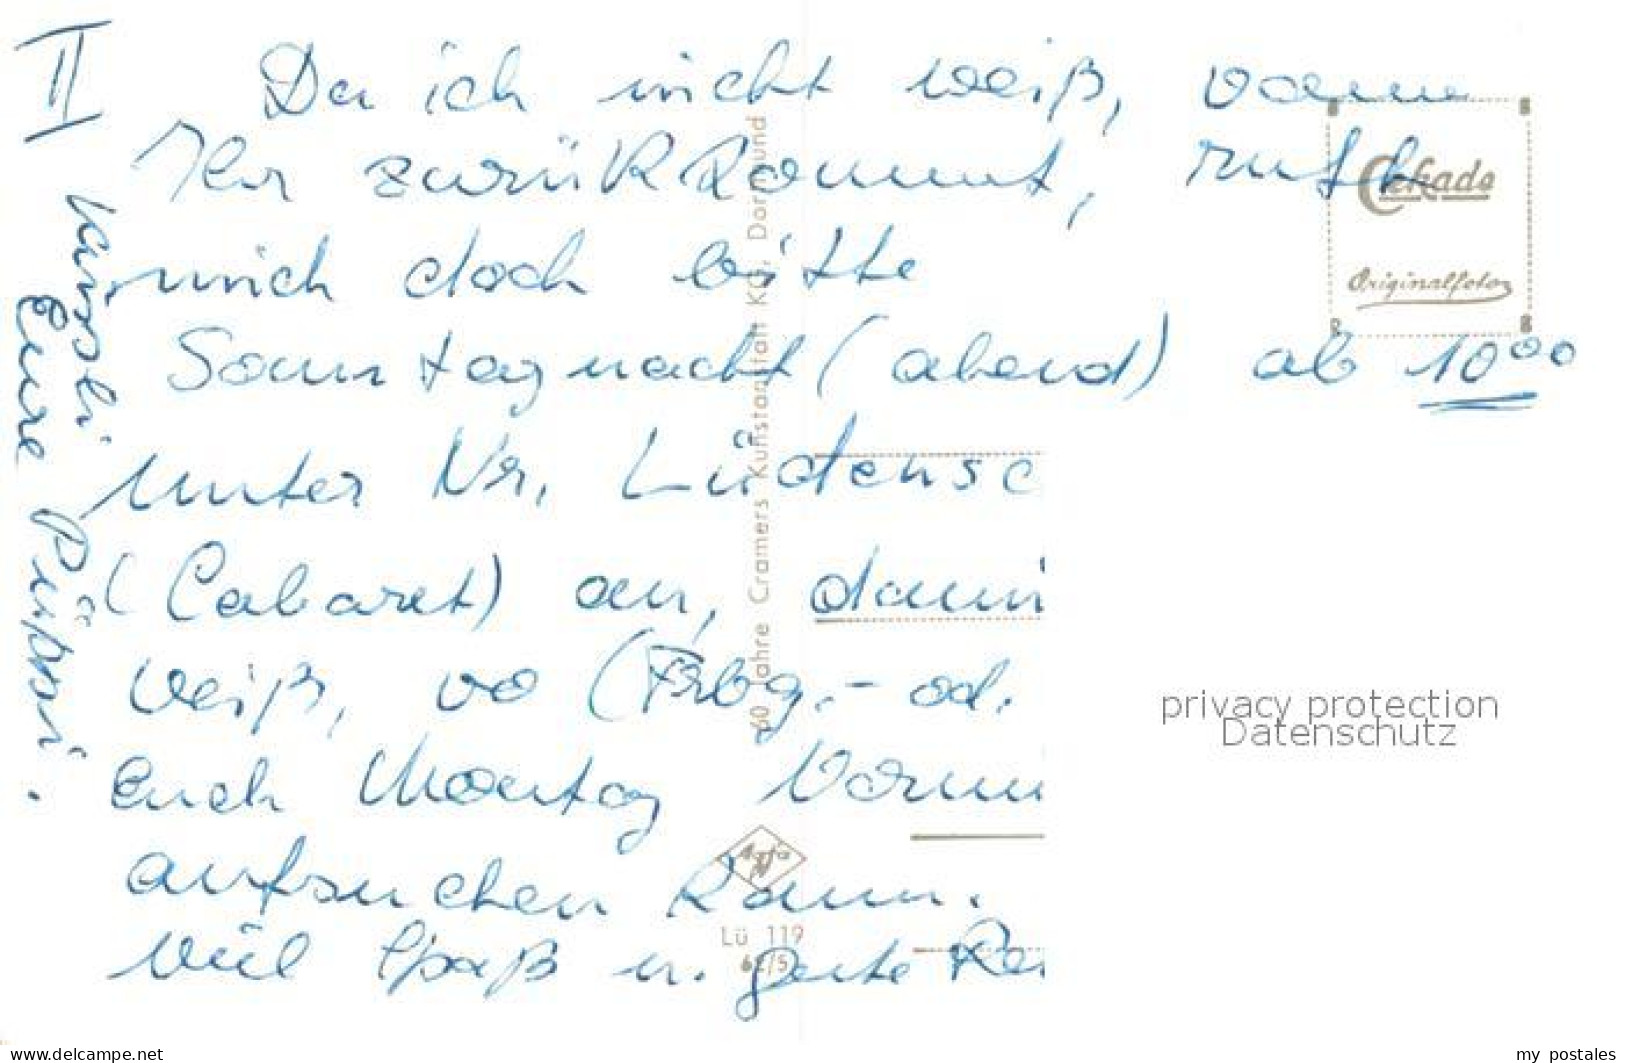 II
Da ich nicht weiß, wann
Ihr zurückkommt, ruft
mich doch bitte
Sonntagnacht (abend) ab 10⁰⁰
unter Nr. Lüdensc
(Cabaret) an, dami
weiß, wo (Frbg.- od.
Euch Montag Vorm
aufsuchen kann.
Viel Spaß u. gute Rei
Eure Püppi.
Cekade
Originalfoto
60 Jahre Cramers Kunstanstalt KG, Dortmund
Agfa
Lü 119
62/5
privacy protection
Datenschutz
www.delcampe.net
my_postales